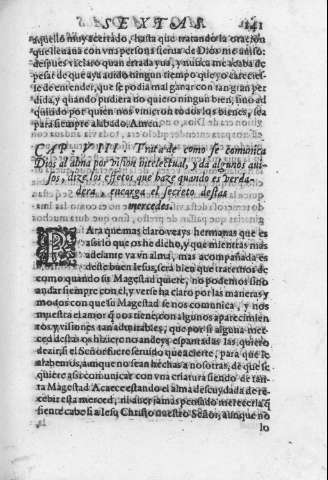 SEXTAS. 141
aquello muy acertado, hasta que tratando la oracion
que lleuaua con vna persona sierua de Dios me auiso:
despues vi claro quan errada yua, y nunca me acaba de
pesar de que aya auido ningun tiempo que yo careciesse
de entender, que se podia mal ganar con tan gran per
dida, y quando pudiera no quiero ningun bien, sino ad
quirido por quien nos vinieron todos los bienes, sea
para siempre alabado. Amen.
CAP. VIII. Trata de como se comunica
Dios al alma por vision intelectual, y da algunos aui-
sos, dize los efetos que haze quando es verda-
dera, encarga el secreto destas
mercedes.
PAra que mas claro veays hermanas que es
assi lo que os he dicho, y que mientras mas
adelante va vn alma, mas acompañada es
deste buen Iesus, sera bien que tratemos de
como quando su Magestad quiere, no podemos sino
andar siempre con el, y verse ha claro por las maneras y
modos con que su Magestad se nos comunica, y nos
muestra el amor q̃ nos tiene, con algunos aparecimien
tos y visiones tan admirables, que por si alguna mer-
ced destas os hiziere no andeys espantadas las quiero
dezir, si el Señor fuere seruido que acierte, para que le
alabemos, aunque no sean hechas a nosotras, de que se
quiere assi comunicar con vna criatura siendo de tan-
ta Magestad. Acaece estando el alma descuydada de re-
cebir esta merced, ni auer jamas pensado merecerla, q̃
siente cabe si a Iesu Christo nuestro Señor, aunque no
lo